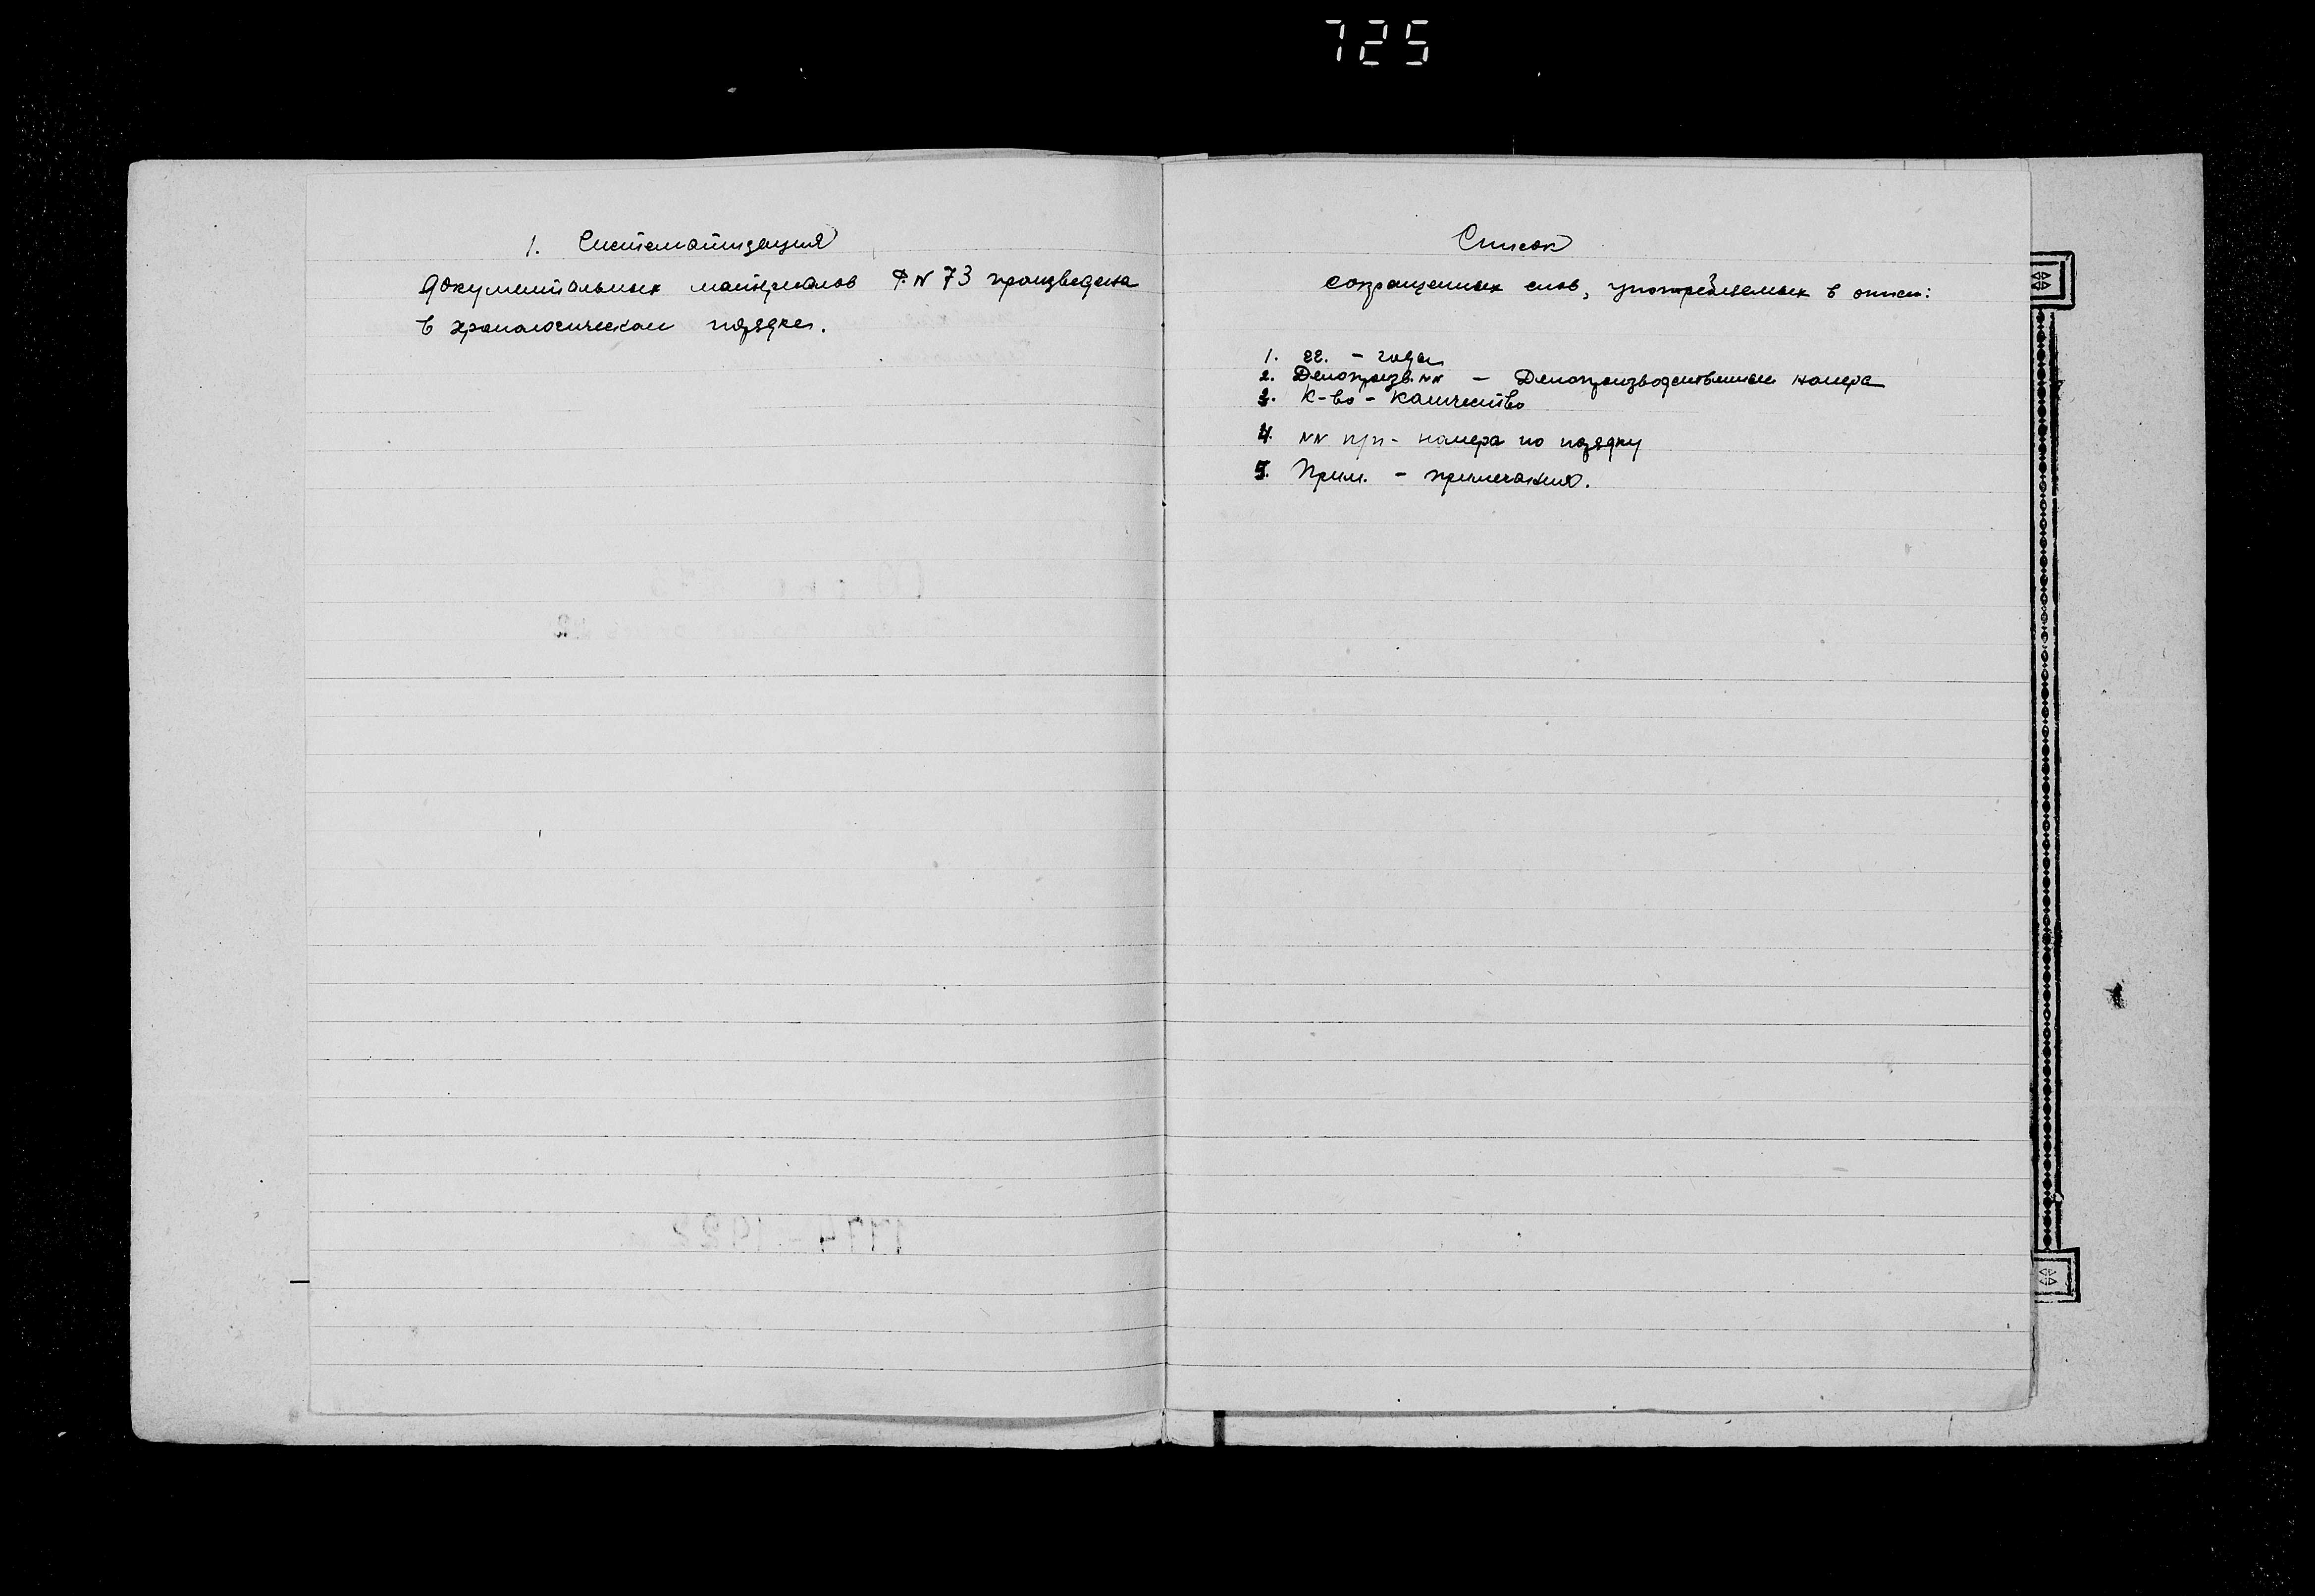 725
1. Систематизация
документальных материалов Ф. N 73 произведена
в хронологическом порядке.
Список
сокращенных слов, употребляемых в описи:
1. гг. - года
2. Делопроизв. NN - Делопроизводственные номера
3. К-во - Количество
4. NN п/п - номера по порядку
5. Прим. - примечания.